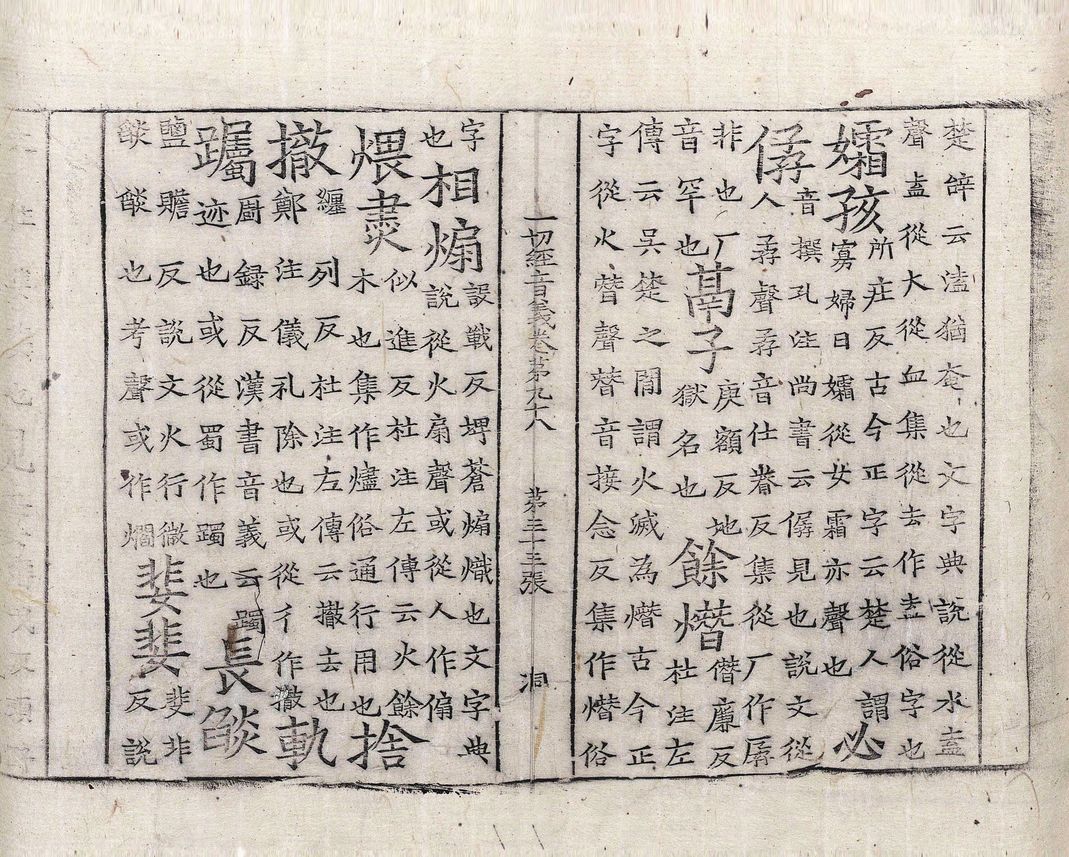 楚辝云溘猶奄也文字典說從水盍
聲盍從大從血集從去作盇俗字也
孀孩 所庄反古今正字云楚人謂
寡婦曰孀從女霜亦聲也 必
僝 音撰孔注尚書云僝見也說文從
人孨聲孨音仕眷反集從厂作孱
非也厂
音罕也 鬲子 庚額反地
獄名也 餘熸 僭廉反
杜注左
傳云吳楚之閒謂火滅為熸古今正
字從火朁聲朁音接念反集作熸俗
一切經音義卷第九十八 第三十三張 洞
字
也 相煽 設戰反埤蒼煽熾也文字典
說從火扇聲或從人作傓
煨㶳 似進反杜注左傳云火餘
木也集作燼俗通行用也 捨
撤 纏列反杜注左傳云撤去也
鄭注儀礼除也或從彳作徹 軌
躅 厨録反漢書音義云躅
迹也或從蜀作躅也 長燄
鹽贍反說文火行微
燄燄也考聲或作爓 婓婓 婓非
反說